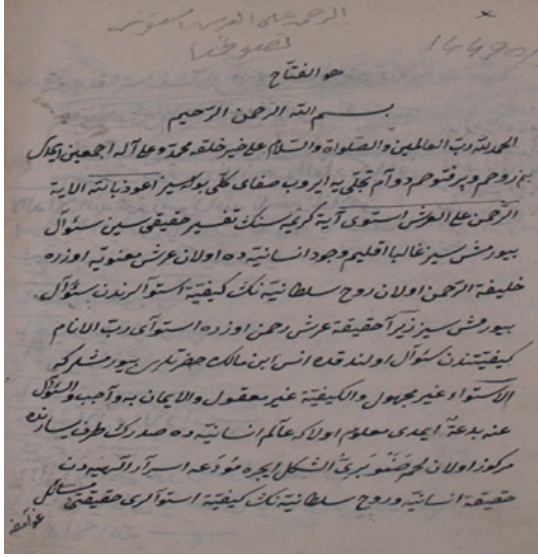 الرحمن على العرش استوى
14490/
هو الفتاح
بسم الله الرحمن الرحيم
الحمد لله رب العالمين والصلواة والسلام على خير خلقه محمد وعلى آله اجمعين ايمدى
بنم روحم و پرفتوحم دوام تجلى يه ايروب صفاى كلى بوله سز اعوذ بالله الاية
الرحمن على العرش استوى آية كريمه سنك تفسير حقيقى سين سئوآل
بيورمش سيز غالبا اقليم وجود انسانيه ده اولان عرش معنويه اوزره
خليفة الرحمن اولان روح سلطانيه نك كيفية استوآلرندن سئوآل
بيورمش سيز زيرآ حقيقة عرش رحمن اوزره استوآى رب الانام
كيفيتندن سئوآل اولندقده انس ابن مالك حضرتلرى بيورمشلر كه
الاستواء غير مجهول والكيفية غير معقول والايمان به وآجب والسئوآل
عنه بدعة ايمدى معلوم اولا كه عالم انسانيه ده صدرك طرف يسارنده
مركوز اولان لحم صنوبرى الشكل ايچره مودعه اسرآر الهيه دن
حقيقة انسانيه و روح سلطانيه نك كيفية استوآلرى حقيقتى مسائل
غوآمضه